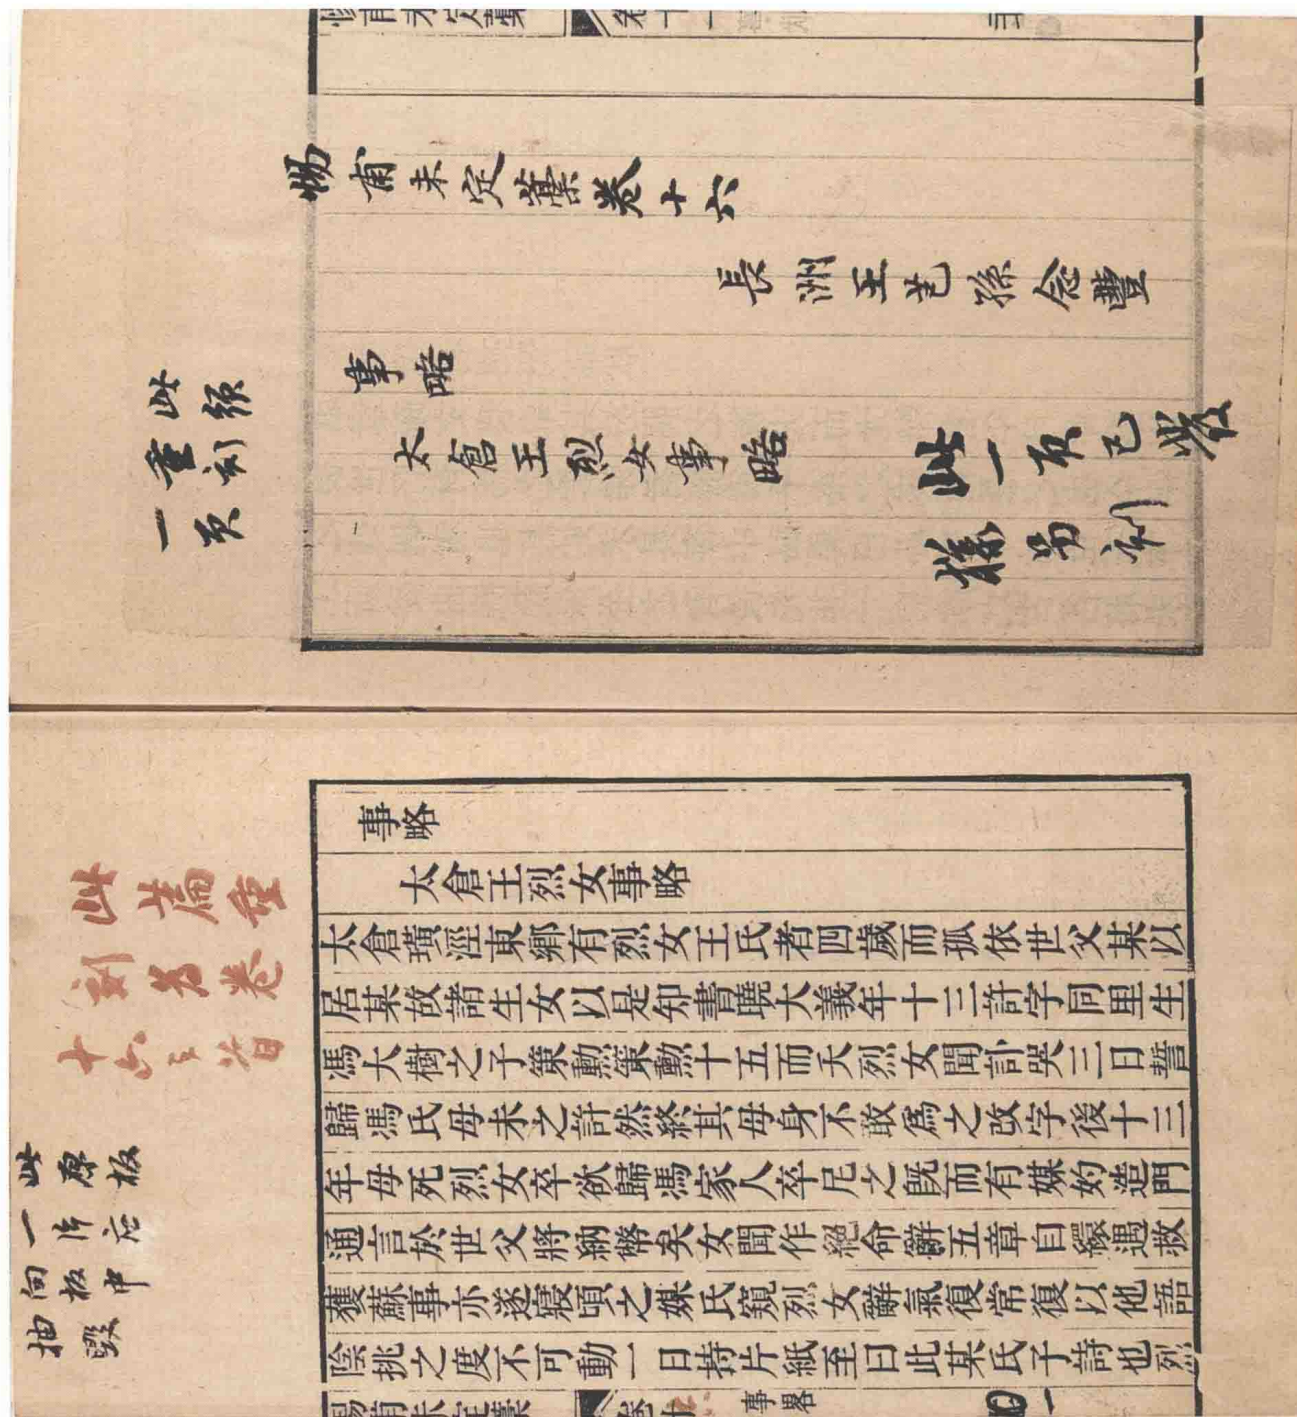 惕甫未定藁 卷十一 三
惕甫未定藁卷十六
長洲王芑孫念豐
事略
太倉王烈女事略
此須
重刻
一頁
此一頁已發
樣另刻
事略
太倉王烈女事略
太倉璜涇東鄉有烈女王氏者四歲而孤依世父某以
居某故諸生女以是知書曉大義年十三許字同里生
馮大樹之子策勲策勲十五而夭烈女聞訃哭三日誓
歸馮氏母未之許然終其母身不敢爲之改字後十三
年母死烈女卒欲歸馮家人卒尼之旣而有媒妁造門
通言於世父將納幣矣女聞作絕命辭五章自繯遇救
獲蘇事亦遂寢頃之媒氏窺烈女辭氣復常復以他語
陰挑之度不可動一日持片紙至曰此某氏子詩也烈
惕甫未定藁 卷十 事畧 一
此篇重
刻為卷
十六之首
此原板
一片应
向板中
抽毀